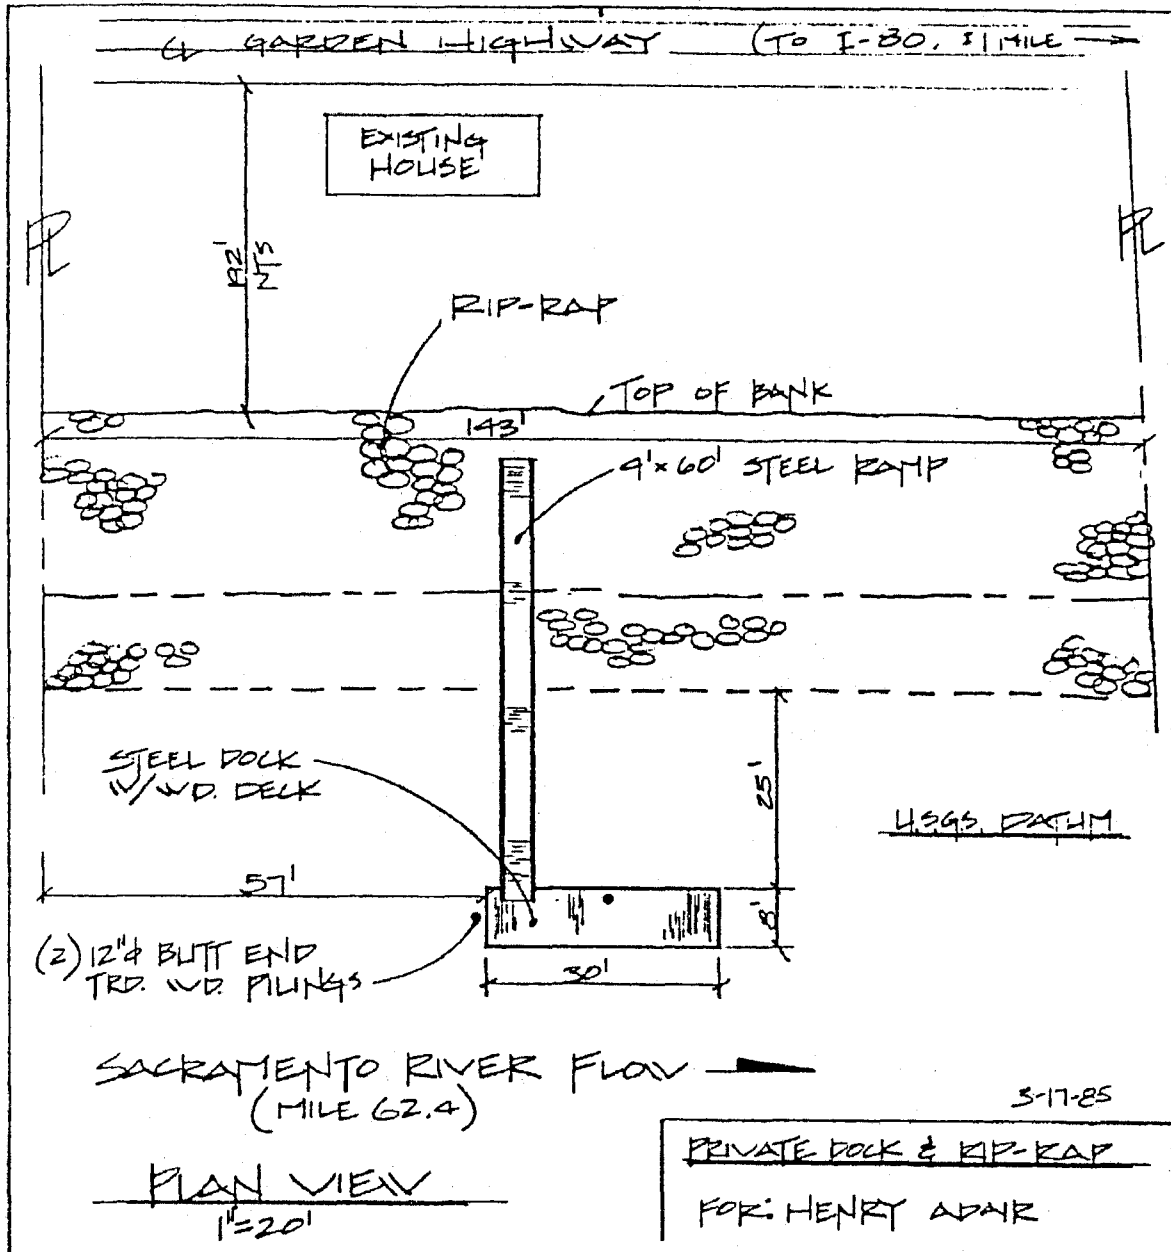 ℄ GARDEN HIGHWAY (TO I-80, ±1 MILE
EXISTING
HOUSE
PL
PL
192'
NTS
RIP-RAP
TOP OF BANK
143'
4'x60' STEEL RAMP
STEEL DOCK
W/WD. DECK
25'
U.S.G.S. DATUM
57'
8'
(2) 12"ϕ BUTT END
TRD. WD. PILINGS
30'
SACRAMENTO RIVER FLOW
(MILE 62.4)
3-17-85
PRIVATE DOCK & RIP-RAP
PLAN VIEW
1"=20'
FOR: HENRY ADAIR